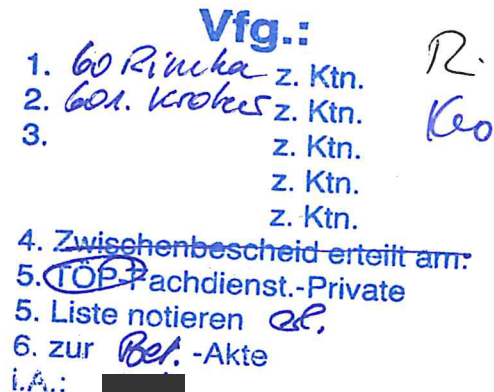 Vfg.:
1. 60 Rimka z. Ktn. R.
2. 601. z. Ktn.
3. z. Ktn.
z. Ktn.
z. Ktn.
4. Zwischenbescheid erteilt am:
5. TÖP-Fachdienst.-Private
5. Liste notieren
6. zur Bet. -Akte
i.A.: